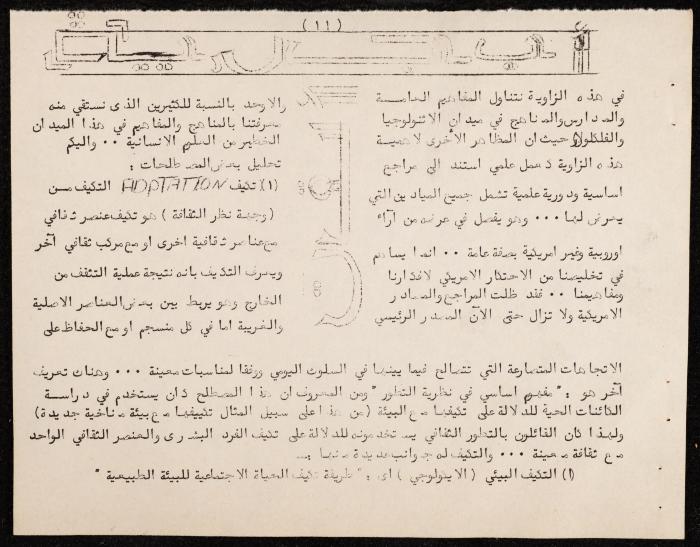 (١١)
في هذه الزاوية نتناول المفاهيم العامة
والمدارس والمناهج في ميدان الاثنولوجيا
والفلكلور حيث ان المظاهر الأخرى لاهمية
هذه الزاوية كعمل علمي استند الى مراجع
اساسية ودورية علمية تشمل جميع الميادين التي
يعرض لها ... وهو يفصل في عرضه من آراء
اوروبية وغير امريكية بصفة عامة .. انما يساهم
في تخليصنا من الاحتكار الامريكي لافكارنا
ومفاهيمنا .. فقد ظلت المراجع والمصادر
الامريكية ولا تزال حتى الآن المصدر الرئيسي
والاوحد بالنسبة للكثيرين الذي نستقي منه
معرفتنا بالمناهج والمفاهيم في هذا الميدان
الخطير من العلوم الانسانية .. واليكم
تحليل بعض المصطلحات :
(١) تكيف ADPTATION التكيف من
(وجهة نظر الثقافة) هو تكيف عنصر ثقافي
مع عناصر ثقافية اخرى او مع مركب ثقافي آخر
ويعرف التكيف بانه نتيجة عملية التثقف من
الخارج وهو يربط بين بعض العناصر الاصلية
والغريبة اما في كل منسجم او مع الحفاظ على
الاتجاهات المتصارعة التي تتصالح فيما بينها في السلوك اليومي ووفقا لمناسبات معينة ... وهناك تعريف
آخر هو : "مفهوم اساسي في نظرية التطور" ومن المعروف ان هذا المصطلح كان يستخدم في دراسة
الكائنات الحية للدلالة على تكيفها مع البيئة (من هذا على سبيل المثال تكييفها مع بيئة مناخية جديدة)
ولهذا كان القائلون بالتطور الثقافي يستخدمونه للدلالة على تكيف الفرد البشرى والعنصر الثقافي الواحد
مع ثقافة معينة ... والتكيف له جوانب عديدة منها :ـ
(١) التكيف البيئي (الايكولوجي) اى : "طريقة تكيف الحياة الاجتماعية للبيئة الطبيعية"